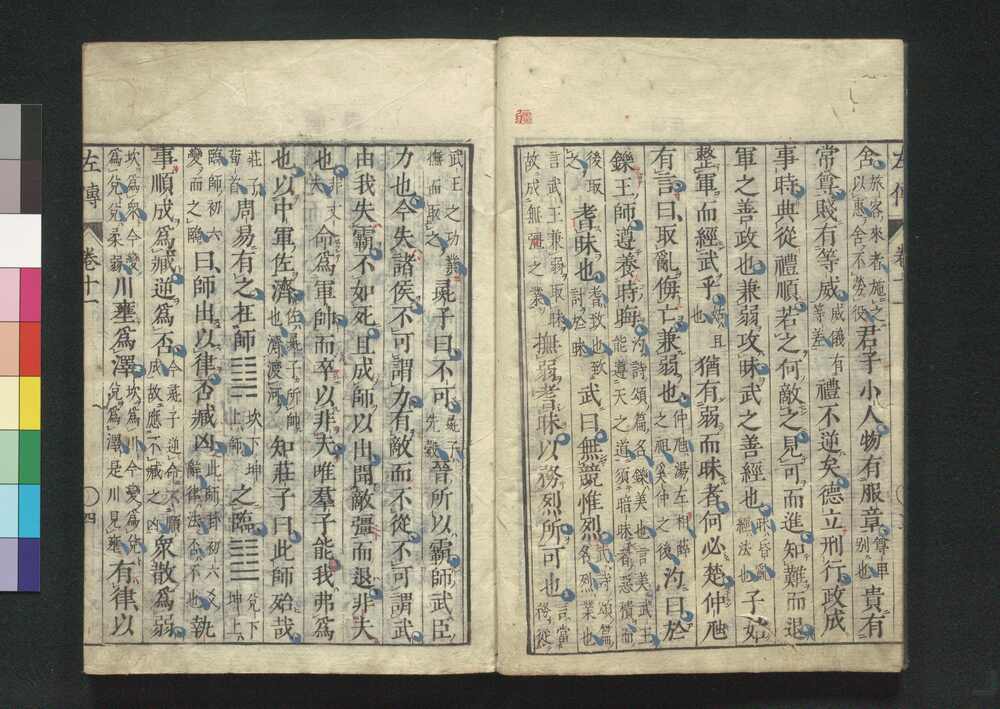 左傳 卷十一
舍旅客來者施之以惠舍不勞役君子小人物有服章尊卑別也貴有
常尊賤有等威威儀有等差禮不逆矣德立刑行政成
事時典從禮順若之何敵之見可而進知難而退
軍之善政也兼弱攻昧武之善經也昧昏亂經法也子姑
整軍而經武乎姑且也猶有弱而昧者何必楚仲虺
有言曰取亂侮亡兼弱也仲虺湯左相薛之祖奚仲之後汋曰於
鑠王師遵養時晦汋詩頌篇名鑠美也言美武王能遵天之道須暗昧者惡積而
後取之耆昧也耆致也致討於昧武曰無競惟烈武詩頌篇名烈業也
言武王兼弱取昧故成無疆之業撫弱耆昧以務烈所可也言當務從
疆
武王之功業撫而取之彘子曰不可彘子先縠晉所以霸師武臣
力也今失諸侯不可謂力有敵而不從不可謂武
由我失霸不如死且成師以出聞敵彊而退非夫
也非丈夫命爲軍帥而卒以非夫唯羣子能我弗爲
也以中軍佐濟佐彘子所帥也濟渡河知莊子曰此師殆哉
莊子荀首周易有之在師䷆坎下坤上師之臨䷒兌下坤上
臨師初六變而之臨曰師出以律否臧凶此師卦初六爻辭律法否不也執
事順成爲臧逆爲否今彘子逆命不順成故應不臧之凶衆散爲弱
坎爲衆今變爲兌兌柔弱川壅爲澤坎爲川今變爲兌兌爲澤是川見壅有律以
左傳 卷十一 四